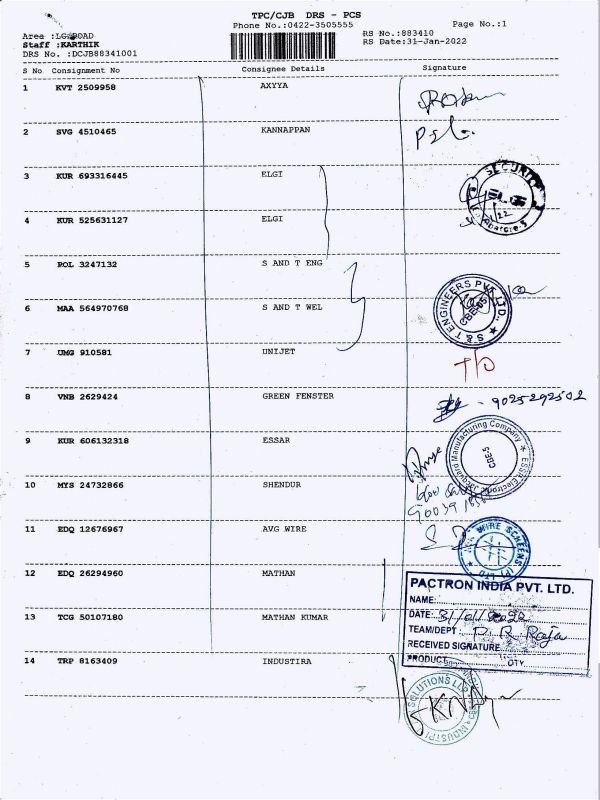 TPC/CJB DRS - PCS
Phone No.:0422-3505555
Page No.:1
Area :LGSROAD
Staff :KARTHIK
DRS No. :DCJB88341001
RS No.:883410
RS Date:31-Jan-2022
S No Consignment No Consignee Details Signature
1 KVT 2509958 AXYYA
2 SVG 4510465 KANNAPPAN
3 KUR 693316445 ELGI
SECURITY
4 KUR 525631127 ELGI
5 POL 3247132 S AND T ENG
6 MAA 564970768 S AND T WEL
S & T ENGINEERS PVT. LTD.,
CBE-05
7 UMG 910581 UNIJET
8 VNB 2629424 GREEN FENSTER
9025292502
9 KUR 606132318 ESSAR
Jacquard Manufacturing Company
CBE-5
10 MYS 24732866 SHENDUR
11 EDQ 12676967 AVG WIRE
WIRE SCREENS (P) LTD
12 EDQ 26294960 MATHAN
PACTRON INDIA PVT. LTD.
NAME:
DATE: 31/01/2022
13 TCG 50107180 MATHAN KUMAR
TEAM/DEPT : P. R. Raja
RECEIVED SIGNATURE
PRODUCT QTY
14 TRP 8163409 INDUSTIRA
SOLUTIONS LLP